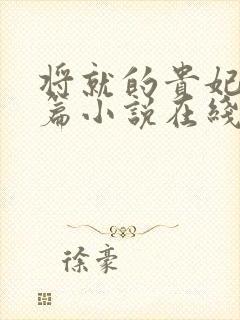 将就的貴妃
篇小說在綫
徐豪